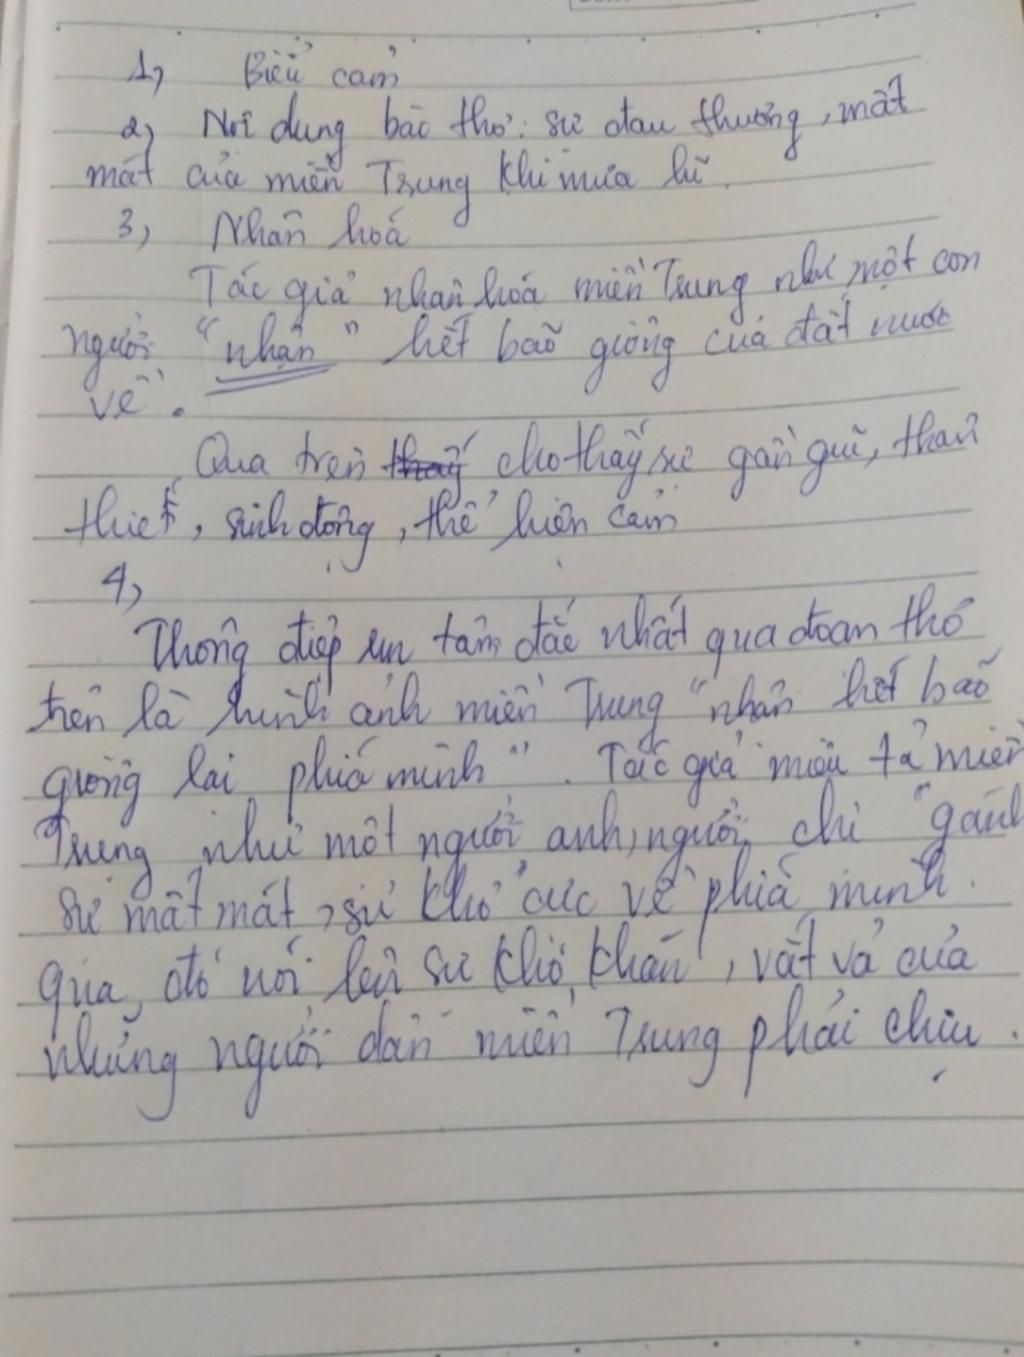 1, Biểu cảm
2, Nội dung bài thơ: sự đau thương, mất
mát của miền Trung khi mưa lũ.
3, Nhân hoá
Tác giả nhân hoá miền Trung như một con
người "nhận" hết bão giông của đất nước
về.
Qua trên thấy cho thấy sự gần gũi, thân
thiết, sinh động, thể hiện cảm
4,
Thông điệp em tâm đắc nhất qua đoạn thơ
trên là hình ảnh miền Trung "nhận hết bão
giông lại phía mình". Tác giả miêu tả miền
Trung như một người anh, người chị "gánh
sự mất mát, sự khổ cực về phía mình.
Qua đó nói lên sự khó khăn, vất vả của
những người dân miền Trung phải chịu.